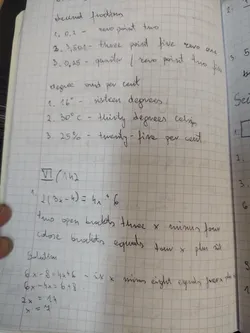 decimal fractions
1. 0.2 - zero point two
2. 3,501 - three point five zero one
3. 0,25 - quarter / zero point two five
degree and per cent
1. 16° - sixteen degrees
2. 30°C - thirty degrees
3. 25% - twenty-five per cent
VI / 142
1.
2(3x-4) = 4x + 6
two open brackets three x minus four
close brackets equals four x plus six
Solution
6x - 8 = 4x + 6 - six x minus eight equals four x plus
6x - 4x = 6+8
2x = 14
x = 7